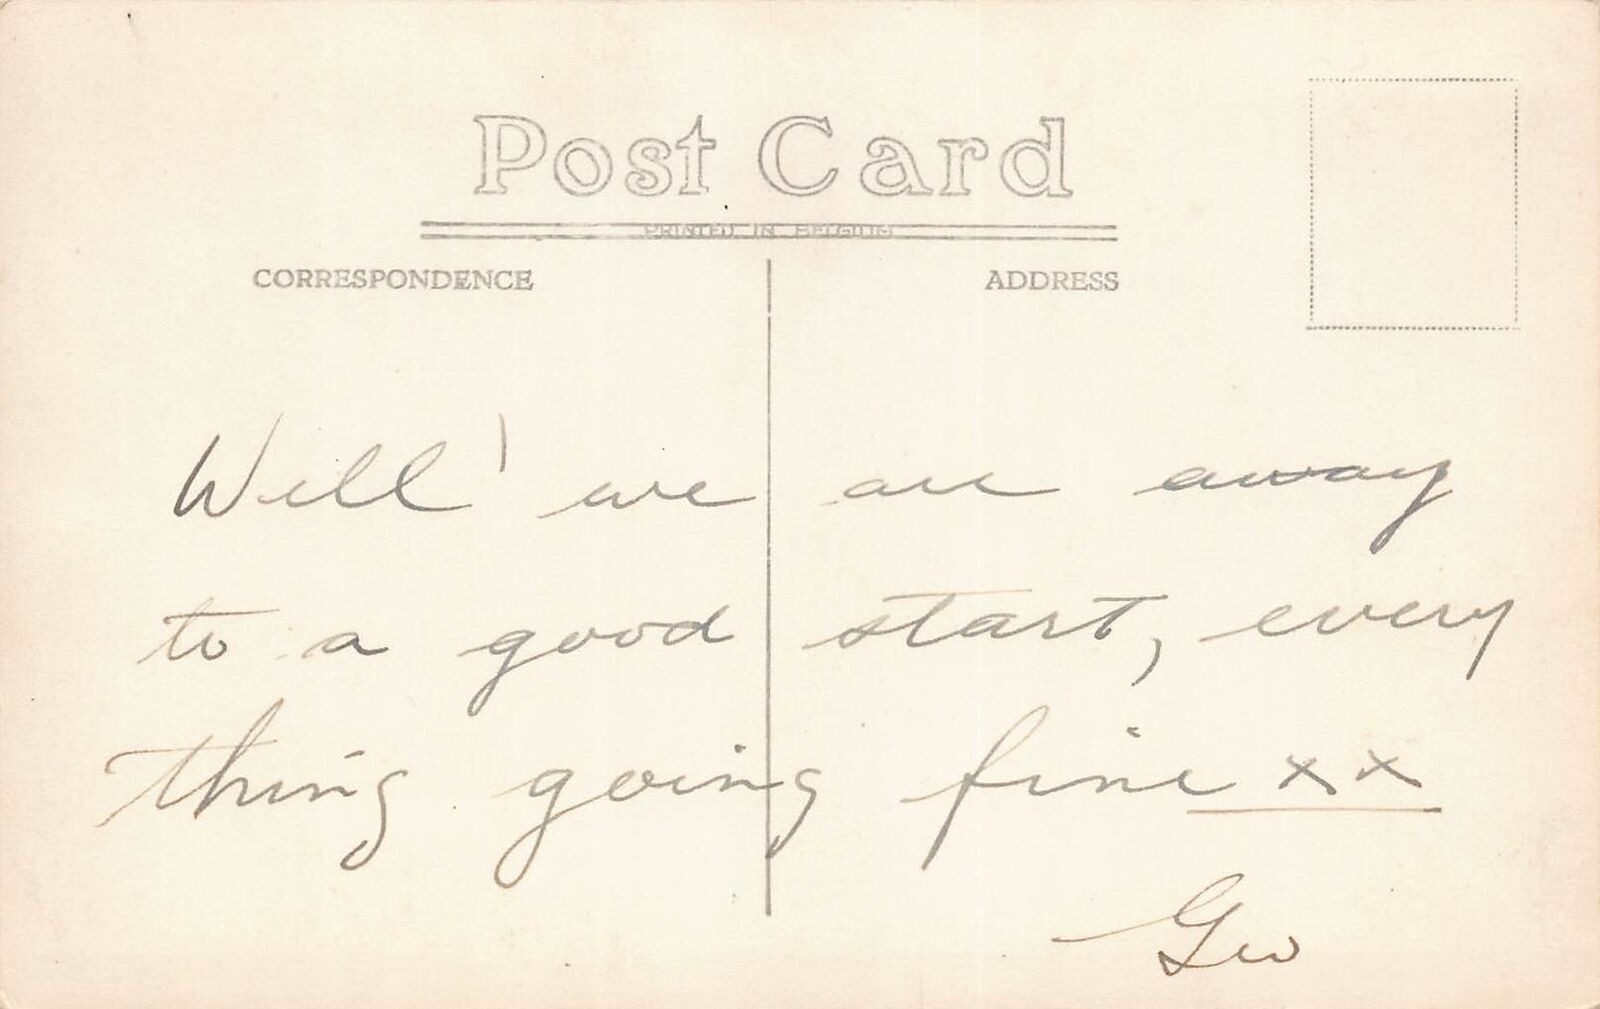 Post Card
PRINTED IN BELGIUM
CORRESPONDENCE ADDRESS
Well! we are away
to a good start, every
thing going fine xx
Geo